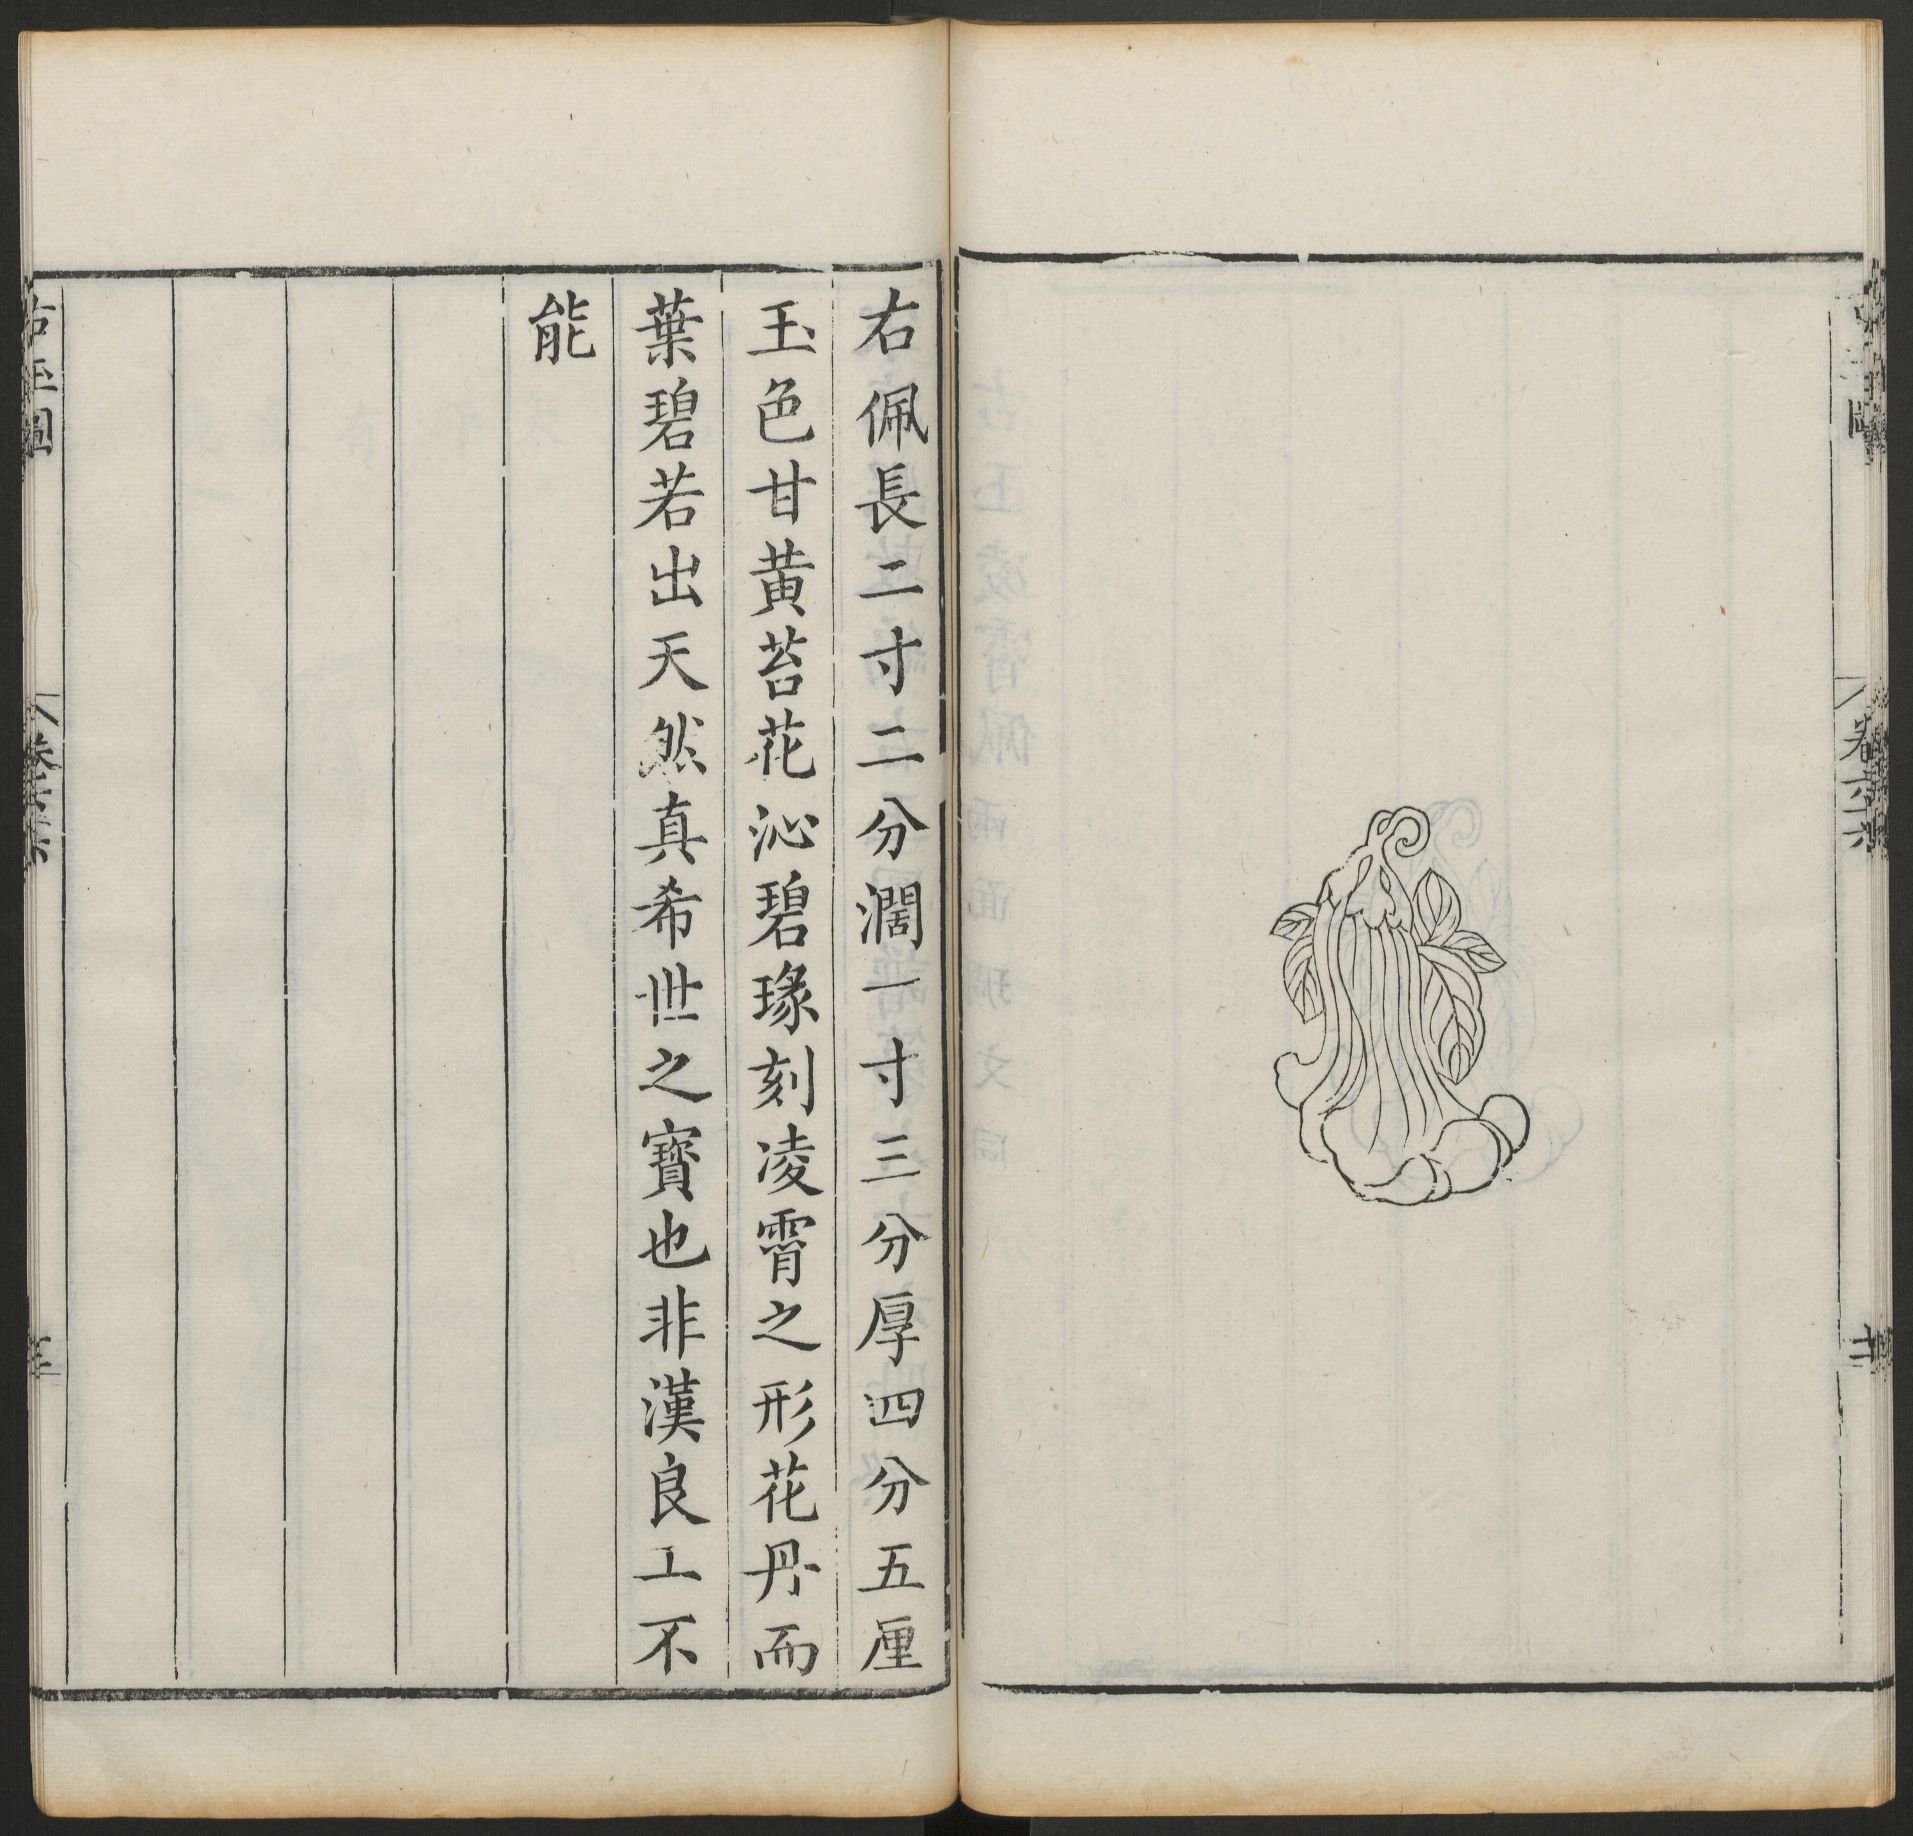 右佩長二寸二分濶一寸三分厚四分五厘
玉色甘黃苔花沁碧瑑刻凌霄之形花丹而
葉碧若出天然真希世之寶也非漢良工不
能
古玉圖